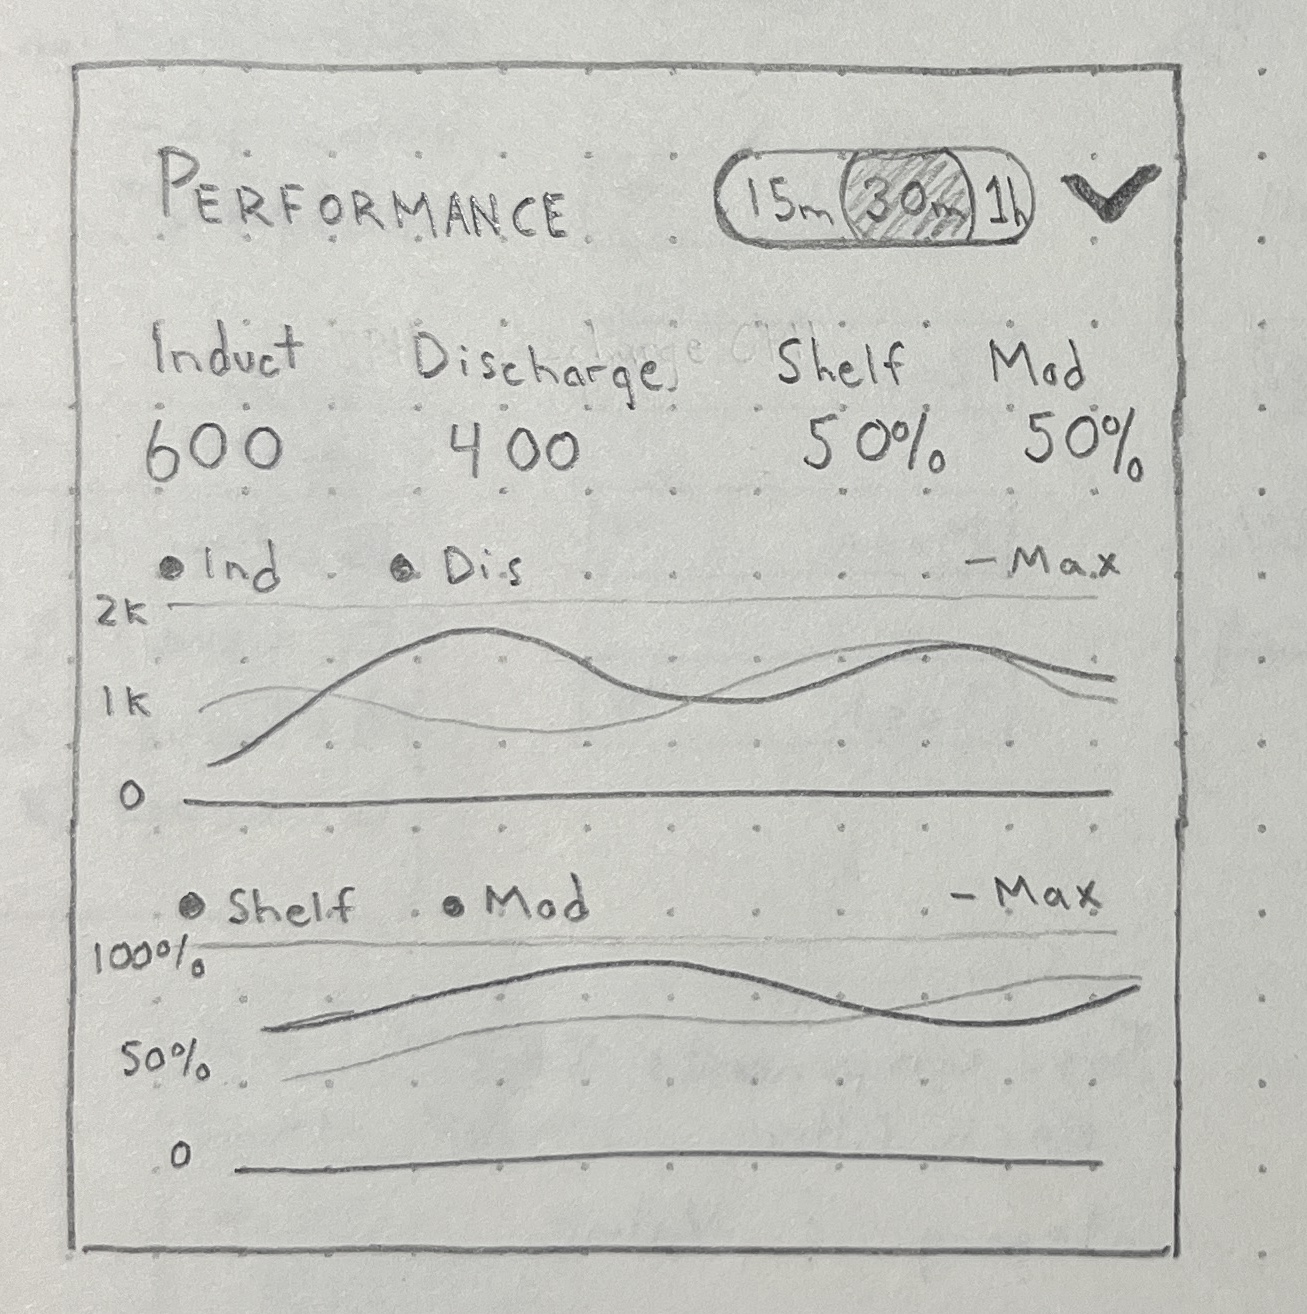 PERFORMANCE 15m 30m 1h
Induct Discharge Shelf Mod
600 400 50% 50%
Ind Dis - Max
2K
1K
0
Shelf Mod - Max
100%
50%
0